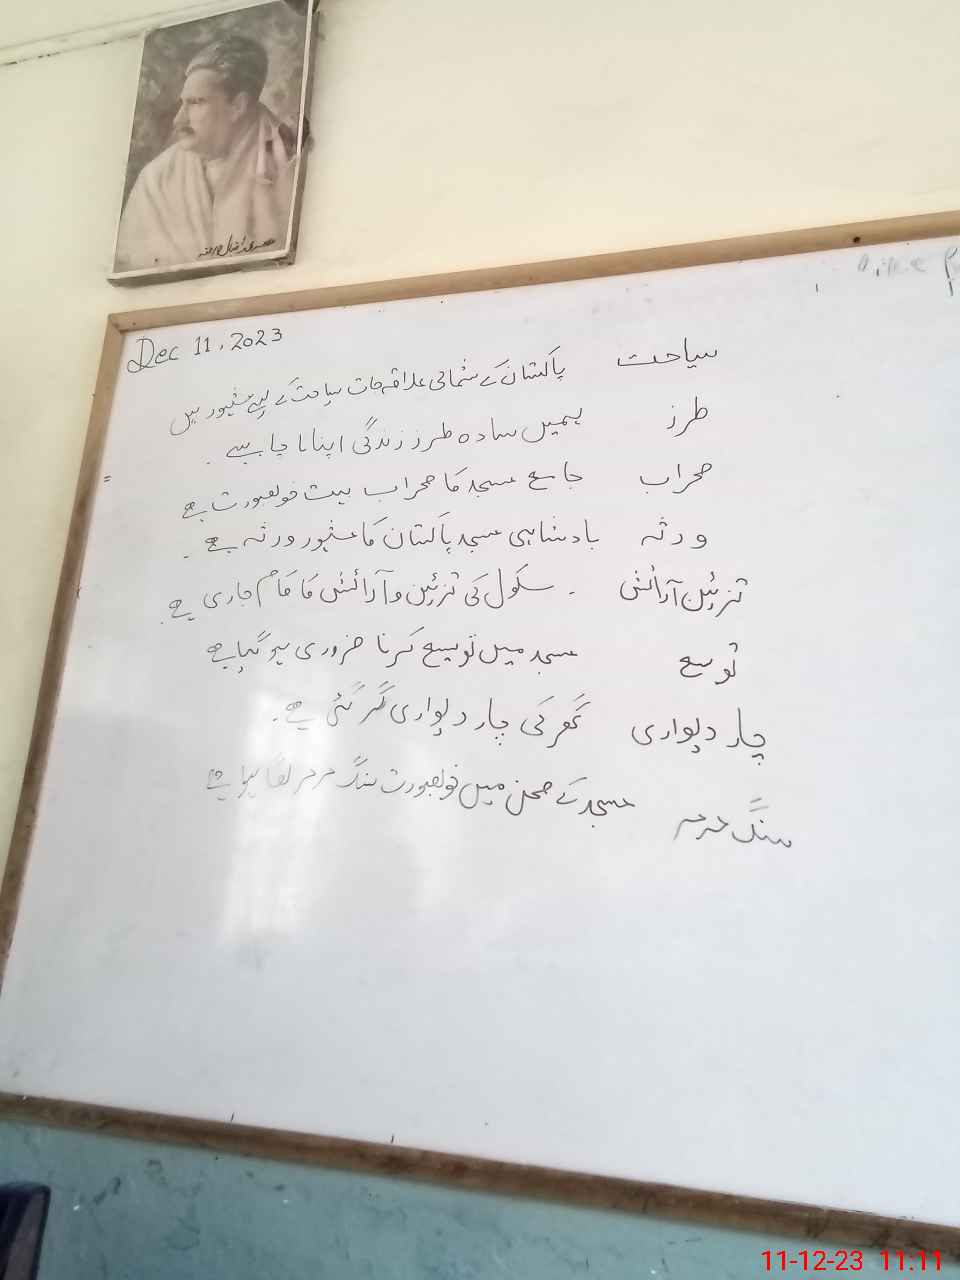 Dec 11, 2023
سیاحت پاکستان کے شمالی علاقہ جات سیاحت کے لیے مشہور ہیں
طرز ہمیں سادہ طرز زندگی اپنانا چاہیے .
محراب جامع مسجد کا محراب بہت خوبصورت ہے
ورثہ بادشاہی مسجد پاکستان کا مشہور ورثہ ہے .
تزئین آرائش . سکول کی تزئین و آرائش کا کام جاری ہے .
توسیع مسجد میں توسیع کرنا ضروری ہو گیا ہے
چار دیواری گھر کی چار دیواری گر گئی ہے .
سنگ مرمر مسجد کے صحن میں خوبصورت سنگ مرمر لگا ہوا ہے
11-12-23 11:11